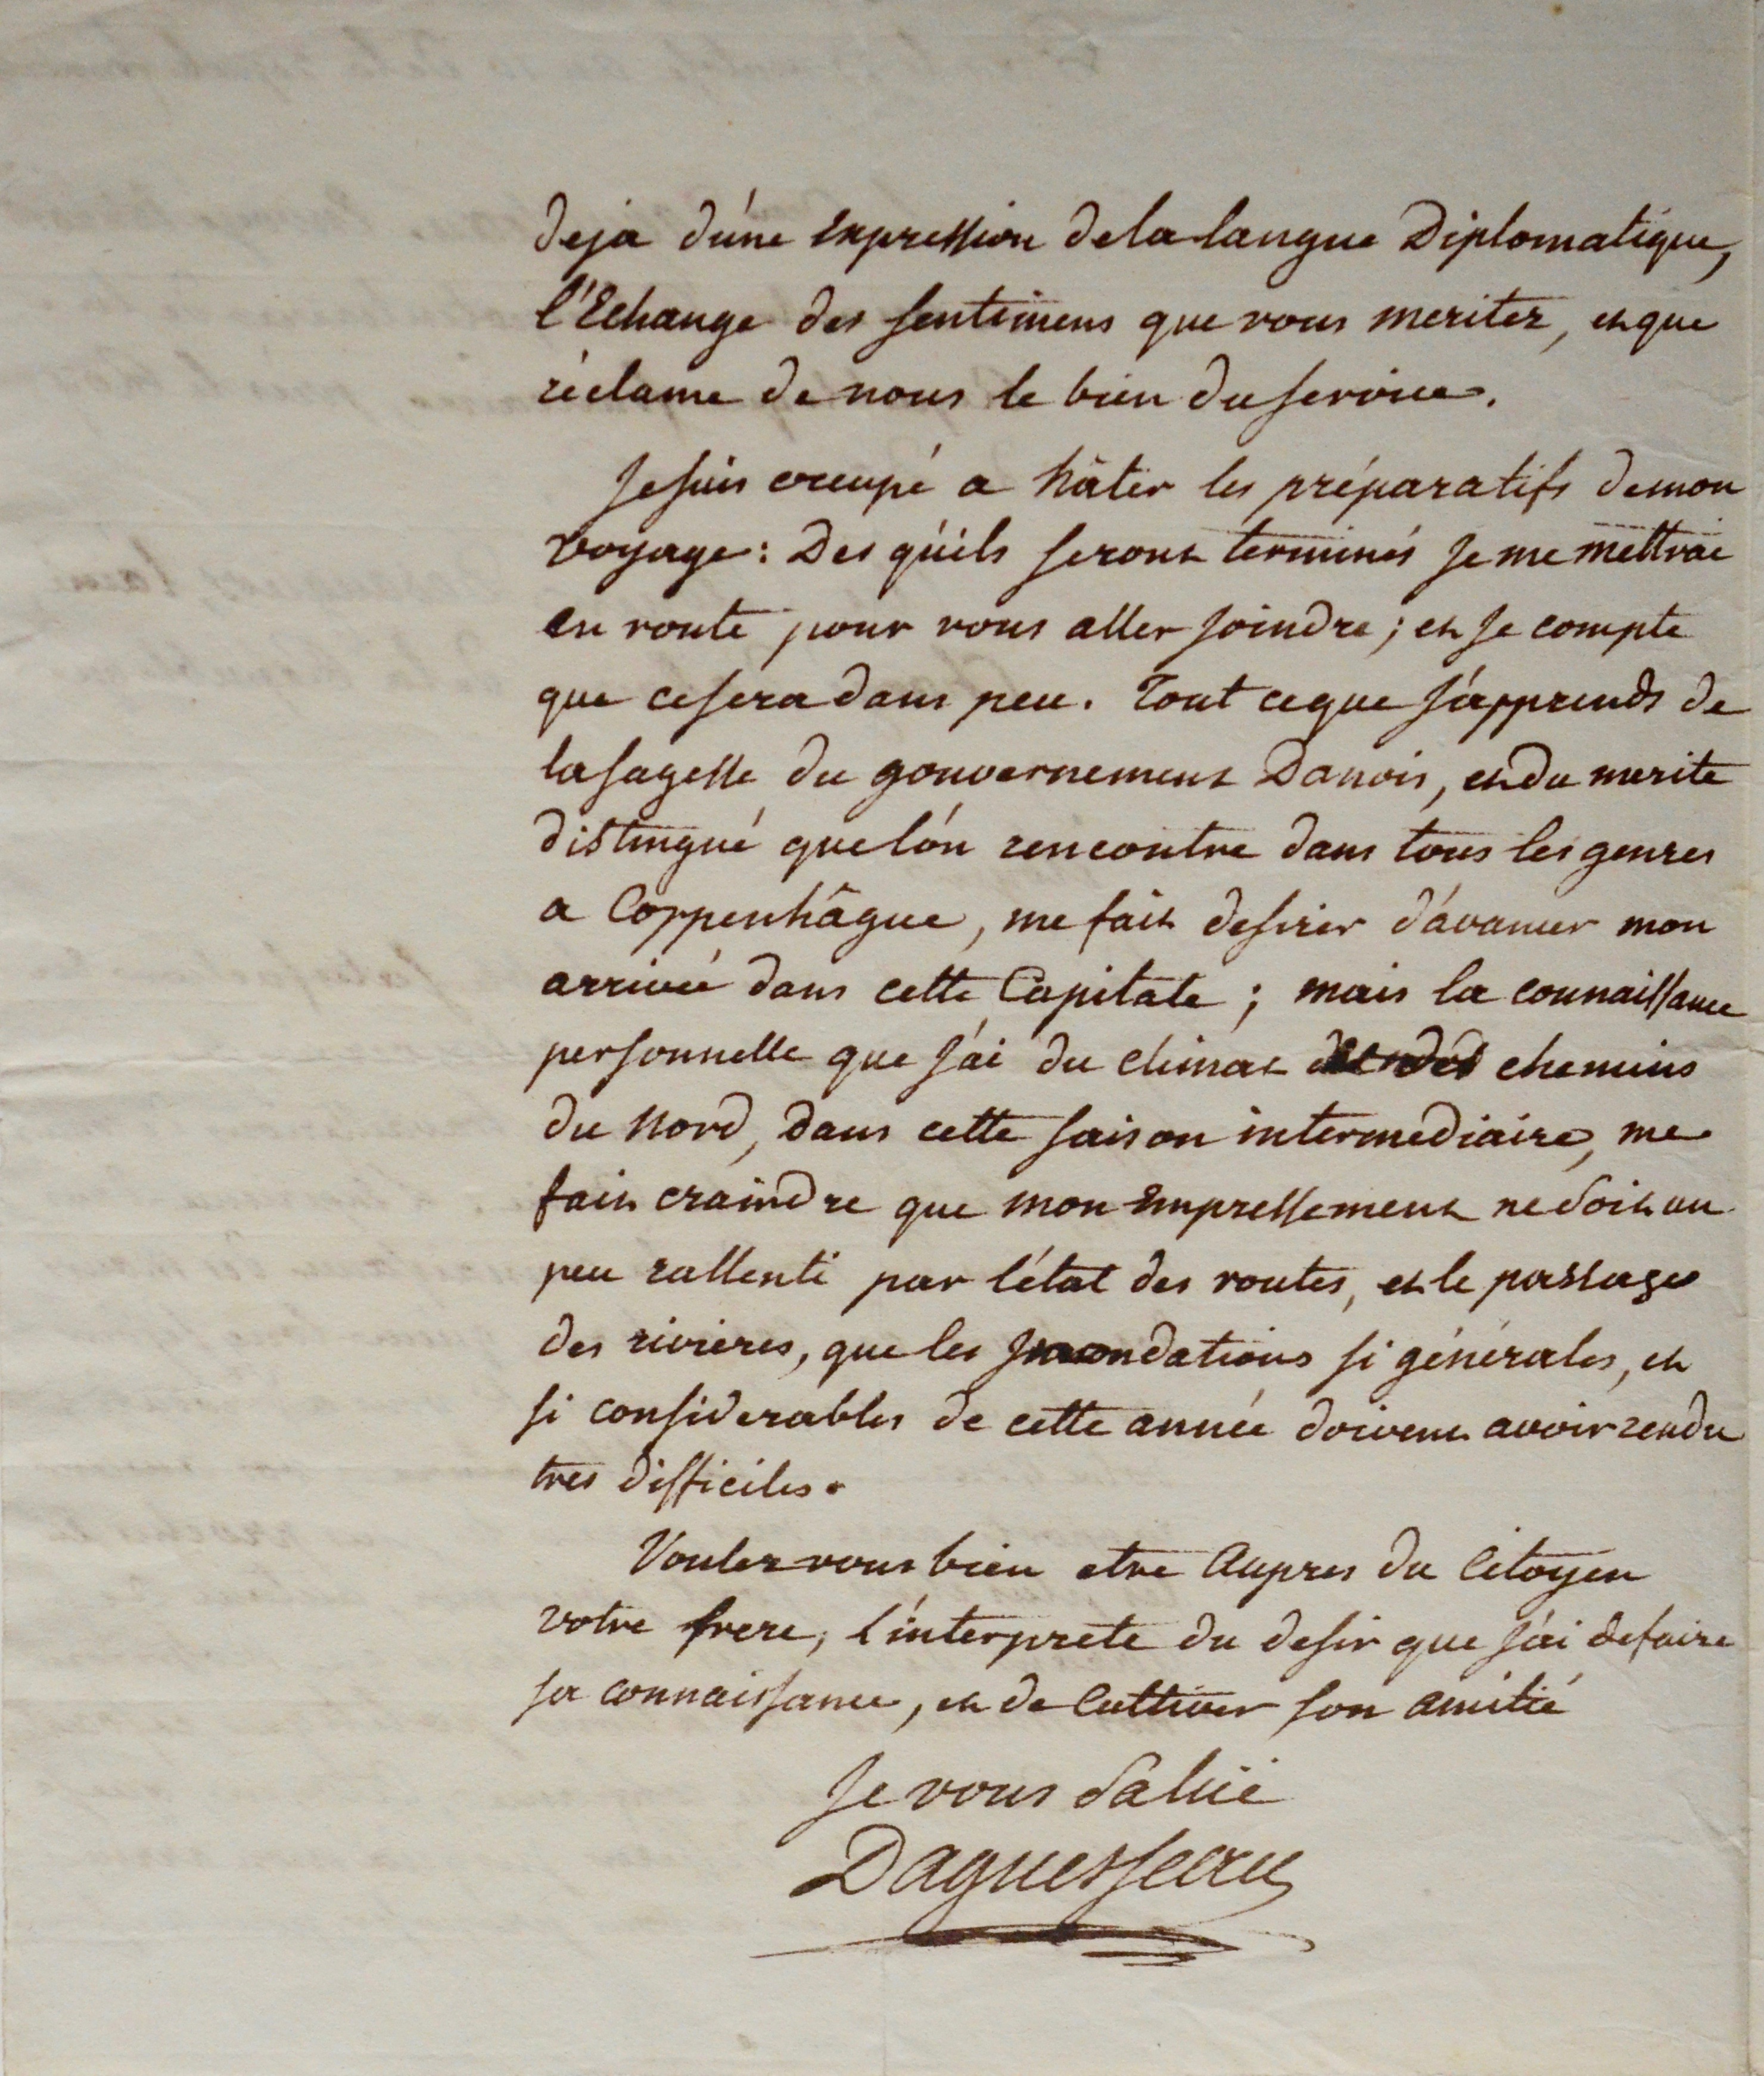 deja d'úne expression de la langue Diplomatique,
l'Echange des sentimens que vous meritez, et que
réclame de nous le bien du service.
Je suis occupé a hâter les préparatifs de mon
voyage: Des qu'ils seront terminés Je me mettrai
en route pour vous aller joindre; et Je compte
que ce sera dans peu. Tout ce que J'apprends de
la sagesse du gouvernement Danois, et du merite
distingué que l'ón rencontre dans tous les genres
a Coppenhâgue, me fait desirer d'ávancer mon
arrivée dans cette Capitale; mais la connaissance
personnelle que J'ai du climat et des chemins
du Nord, dans cette saison intermediaire, me
fait craindre que mon Empressement ne soit un
peu rallenti par l'état des routes, et le passage
des rivières, que les Jnondations si générales, et
si considerables de cette année doivent avoir rendu
tres difficiles.
Voulez vous bien etre Aupres du Citoyen
votre frere, l'interprete du desir que J'ai de faire
sa connaissance, et de Cultiver son amitié
Je vous Salüe
Daguesseau